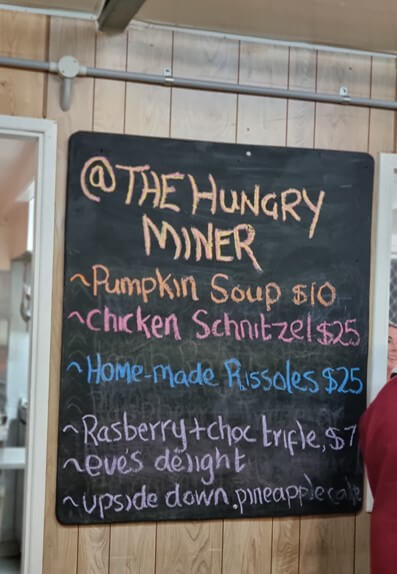 @THE HUNGRY
MINER
~Pumpkin Soup $10
~Chicken Schnitzel $25
~Home-made Rissoles $25
~Rasberry+choc trifle, $7
~eve's delight
~upside down.pineapple cake